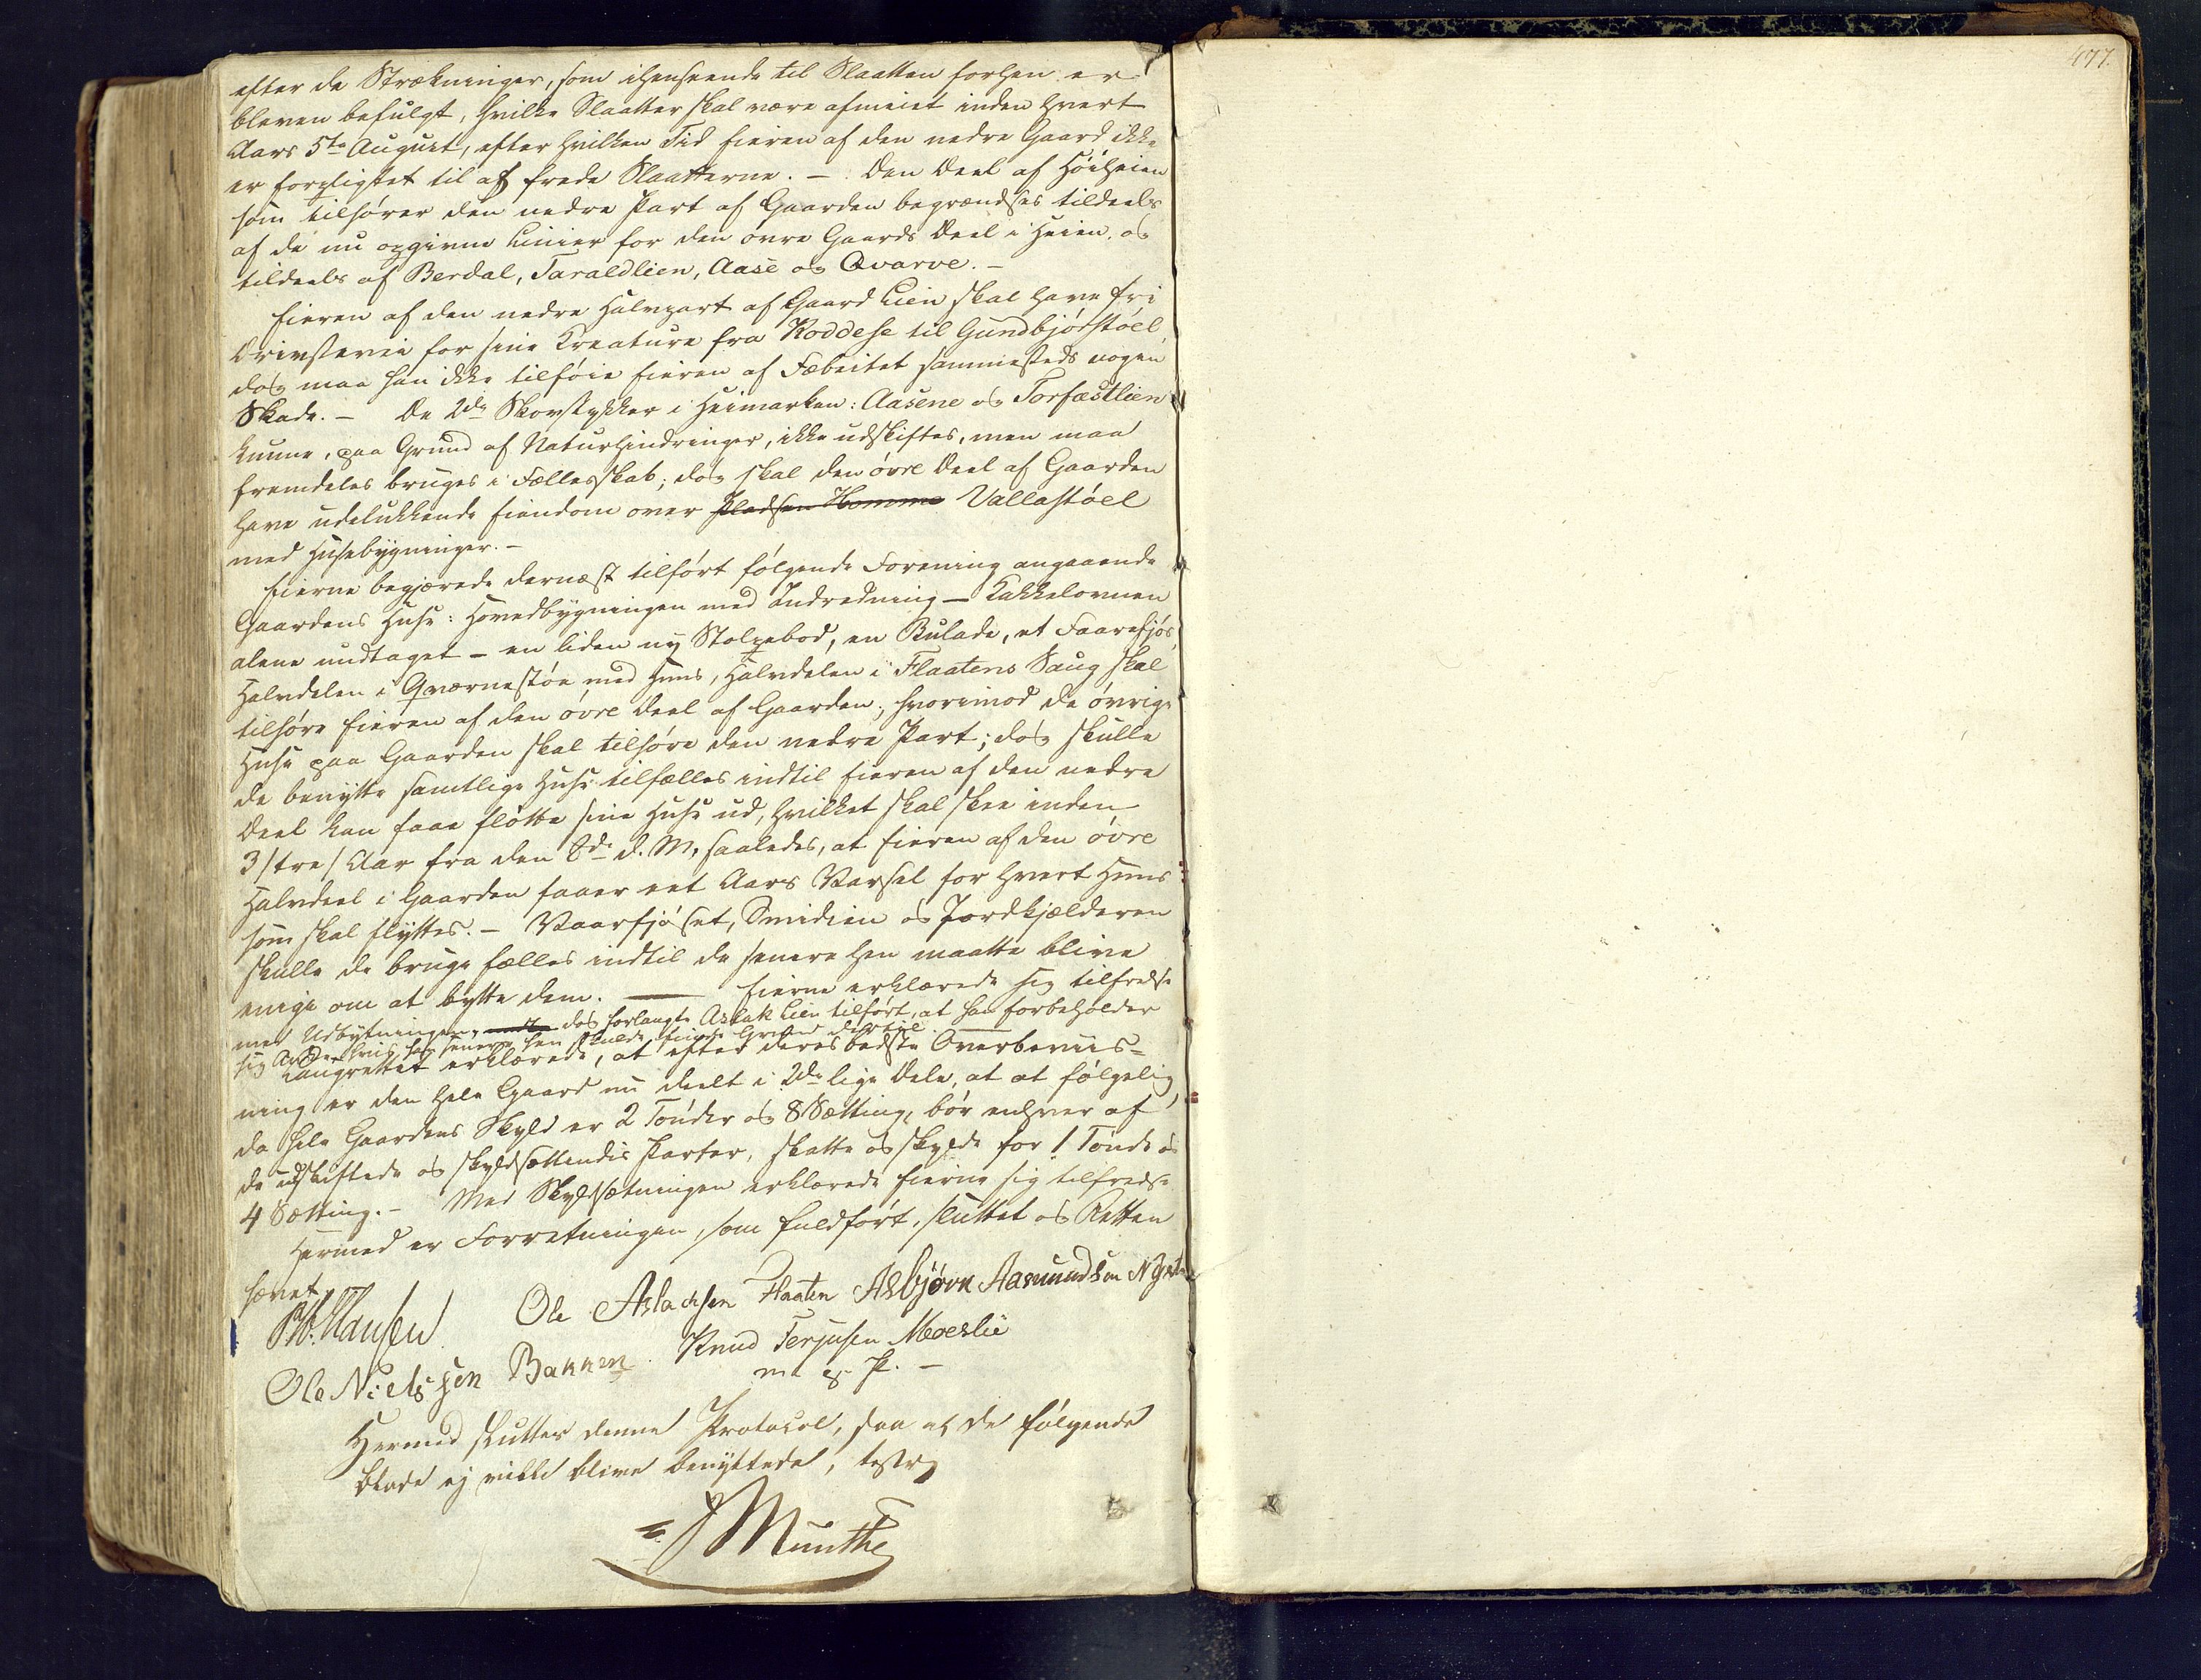 efter de Strækninger, som ihenseende til Slaatten forhen er
bleven befulgt, hvilke Slaatter skal være afmeiet inden hvert
Aars 5te August, efter hvilken Tid Eieren af den nedre Gaard ikke
er forpligtet til at frede Slaatterne. — Den Deel af Høiheien
som tilhører den nedre Part af Gaarden begrændses tildeels
af de nu opgivne Linier for den øvre Gaards Deel i Heien, og
tildeels af Berdal, Taraldlien, Aase og Qvarve. —
Eieren af den nedre Halvpart af Gaard Lien skal have fri
Drivsterei for sine Kreature fra Roddese til Gundbjørstøel
dog maa han ikke tilføie Eieren af Fæbeitet sammesteds nogen
Skade. — De 2de Skovstykker i Heimarken: Aasene og Torfæstlien
kunne, paa Grund af Naturhindringer, ikke udskiftes, men maa
fremdeles bruges i Fællesskab; dog skal den øvre Deel af Gaarden
have udelukkende Eiendom over Pladsen Homme Vallastøel
med Husebygninger. —
Eierne begjærede dernæst tilført følgende Forening angaaende
Gaardens Huse: Hovedbygningen med Indredning — Kakkelovnen
alene undtaget — en liden ny Stolpebod, en Bulade, et Faarefjøs,
Halvdelen i Qværnestøe med Huus, Halvdelen i Flaatens Saug skal
tilhøre Eieren af den øvre Deel af Gaarden; hvorimod de øvrige
Huse paa Gaarden skal tilhøre den nedre Part; dog skulle
de benytte samtlige Huse tilfælles indtil Eieren af den nedre
Deel kan faae fløtte sine Huse ud, hvilket skal skee inden
3 /tre/ Aar fra den 8de d. M, saaledes, at Eieren af den øvre
Halvdeel i Gaarden faaer eet Aars Varsel for hvert Huus
som skal flyttes. — Vaarfjøset, Smidien og Jordkjælderen
skulle de bruge fælles indtil de senere hen maatte blive
enige om at bytte dem. — Eierne erklærede sig tilfredse
med Udbytningen, dog forlangte Aslak Lien tilført, at han forbeholder
sig hvis han senere hen skulde finde Grund dertil.
Laugrettet erklærede, at efter deres bedste Overbeviis-
ning er den hele Gaard nu deelt i 2de lige Dele, at at følgelig,
da hele Gaardens Skyld er 2 Tønder og 8 Sætting, bør enhver af
de udskiftede og skyldsættendis Parter, skatte og skylde for 1 Tønde og
4 Sætting. — Med Skyldsætningen erklærede Eierne sig tilfredse
Hermed er Forretningen, som fuldført, sluttet og Retten
hævet.
Hansen Ole Aslachsen Flaaten Asbjørn Aasmundsen
Ole Nielssen Bakken. Knud Terjusen Moeslie
m. p. P. —
Hermed sluttes denne Protocol, saa at de følgende
Blade ej ville blive benyttede, testeres
Munthe
477.